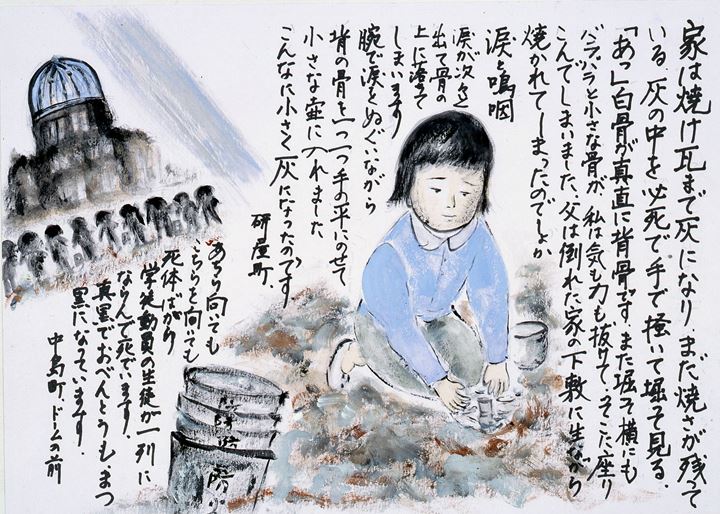 家は焼け瓦まで灰になり、まだ焼さが残って
いる、灰の中を必死で手で掻いて堀て見る、
「あっ」白骨が真直に背骨です、また堀て横にも
バラバラと小さな骨が、私は気も力も抜けて、そこに座り
こんでしまいました、父は倒れた家の下敷に生ながら
焼かれてしまったのでしょか
涙と嗚咽
涙が次々と
出て骨の
上に落ちて
しまいます
腕で涙をぬぐいながら
背の骨を一つ一つ手の平にのせて
小さな壷に入れました
こんなに小さく灰になったのです、
研屋町、
あちら向いても
こちらを向いても
死体ばかり
学徒動員の生徒が一列に
ならんで死でいます、
真黒でおべんとうも、まっ
黒になっています、
中島町、ドームの前